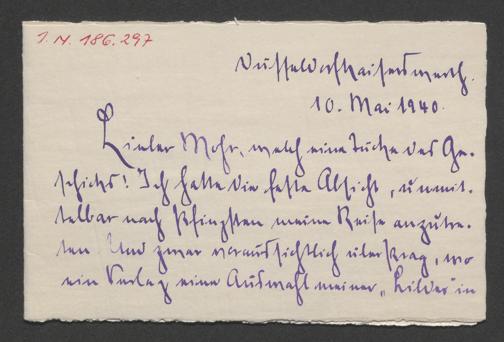 I. N. 186.297
Düsseldorf-Kaiserswerth.
10. Mai 1940.
Lieber Mohr, welch eine Tücke des Ge-
schicks! Ich hatte die feste Absicht, unmit-
telbar nach Pfingsten meine Reise anzutre-
ten. Und zwar voraussichtlich über Prag, wo
ein Verlag eine Auswahl meiner „Bilder" in